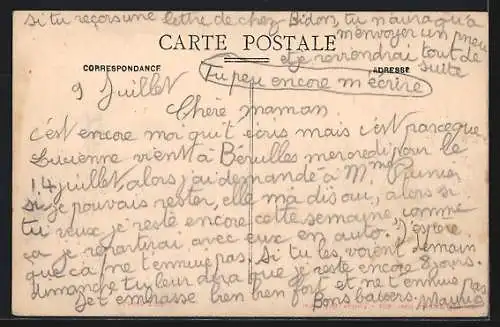 si tu reçois une lettre de chez Bidon, tu n'auras qu'à
m'envoyer un pneu
et je reviendrai tout de
suite
CARTE POSTALE
CORRESPONDANCE
ADRESSE
Tu peu encore m'écrire
9 Juillet
Chère maman
c'est encore moi qui t'écris mais c'est parceque
Lucienne vient à Bérulles mercredi pour le
14 juillet, alors j'ai demandé à Mme Prunier
si je pouvais rester, elle m'a dis oui, alors si
tu veux je reste encore cette semaine, comme
ça je repartirai avec eux en auto. J'espère
que ça ne t'ennuie pas. Si tu les voient demain
dimanche tu leur dira que je reste encore 8 jours.
Je t'embrasse bien bien fort et ne t'ennuie pas
Bons baisers